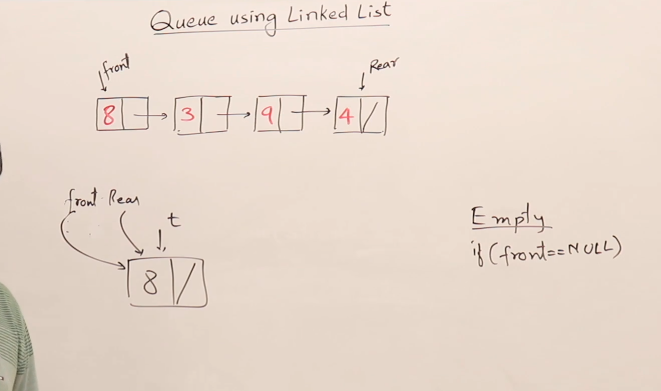 Queue using Linked List
front
Rear
8 3 9 4
front Rear
t
8
Empty
if(front==NULL)